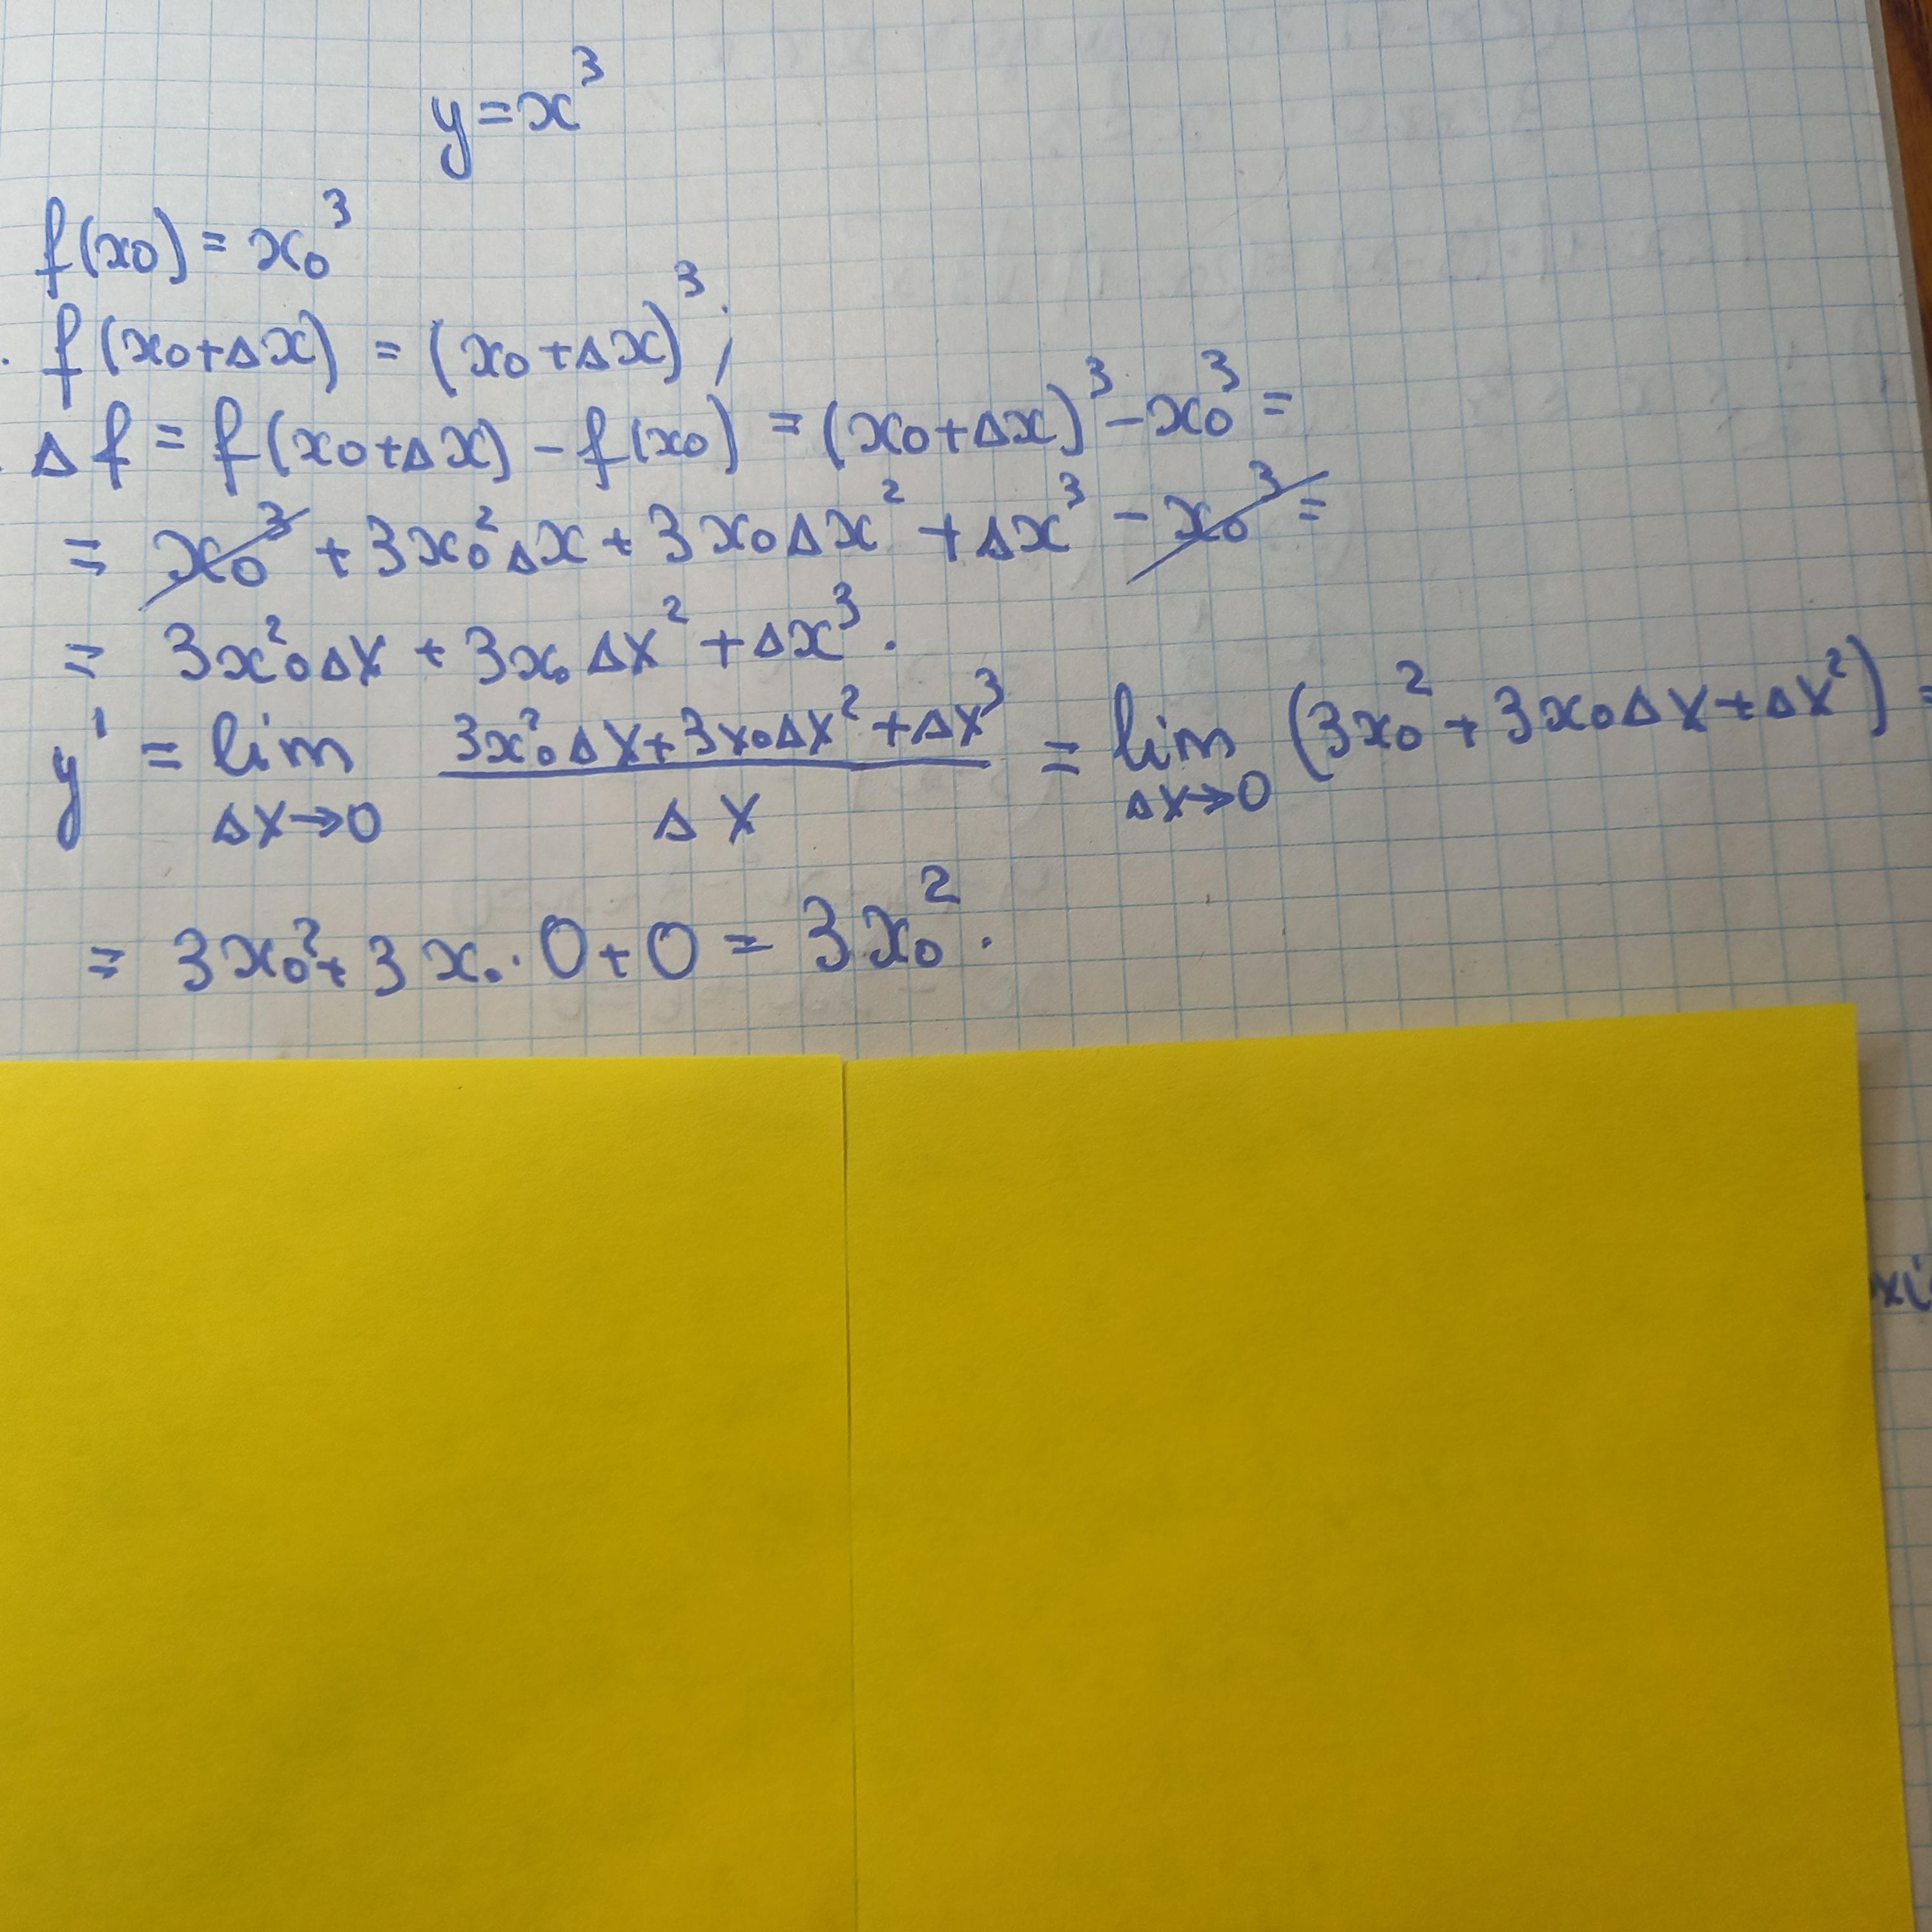 y = x³
f(x₀) = x₀³
. f(x₀+Δx) = (x₀+Δx)³;
. Δf = f(x₀+Δx) - f(x₀) = (x₀+Δx)³ - x₀³ =
= x₀³ + 3x₀²Δx + 3x₀Δx² + Δx³ - x₀³ =
= 3x₀²Δx + 3x₀Δx² + Δx³.
y' = lim Δx→0 (3x₀²Δx + 3x₀Δx² + Δx³)/Δx = lim Δx→0 (3x₀² + 3x₀Δx + Δx²) =
= 3x₀² + 3x₀·0 + 0 = 3x₀².